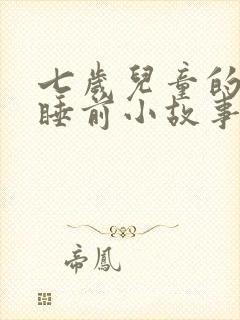 七歲兒童的
睡前小故事
帝鳳